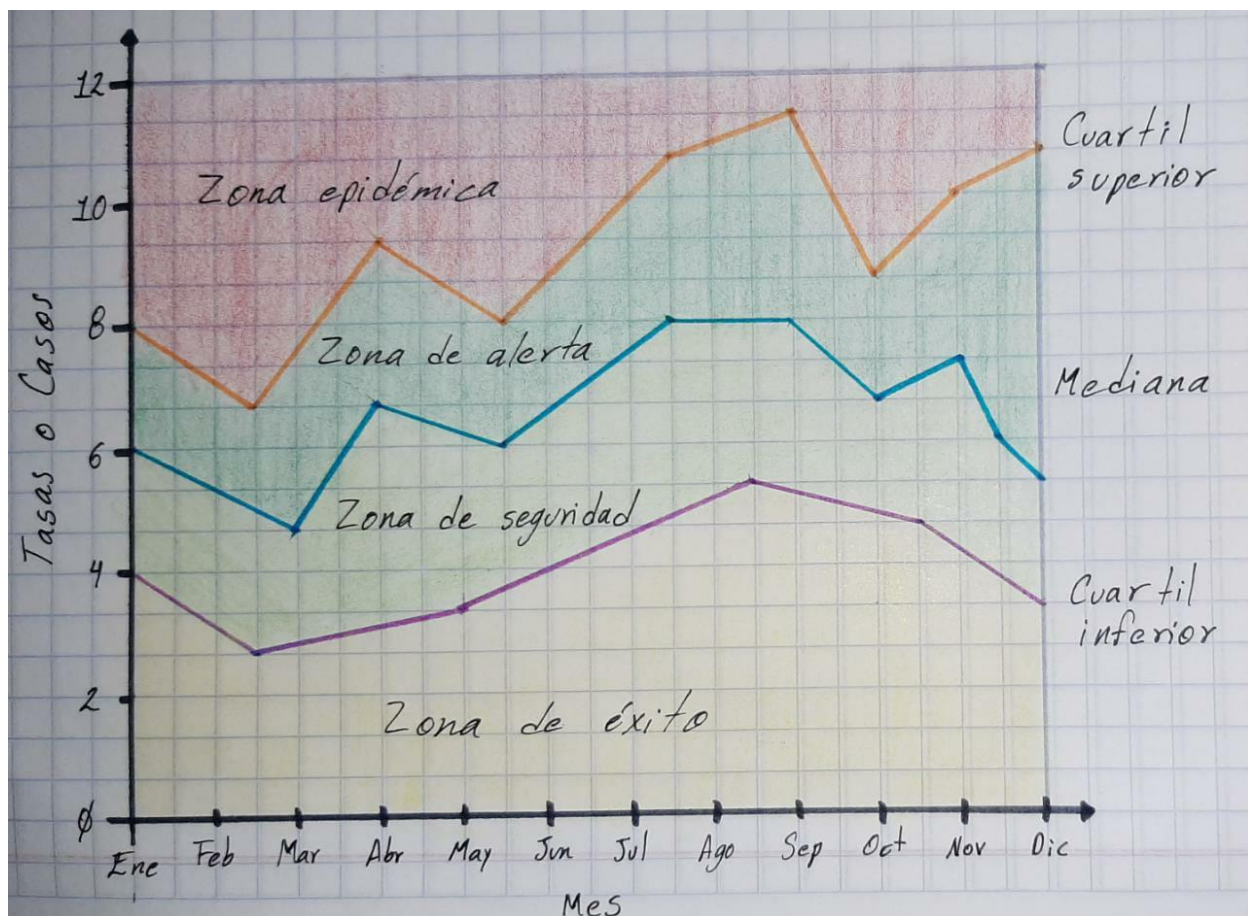 12
10
8
6
4
2
0
Tasas o Casos
Zona epidémica
Zona de alerta
Zona de seguridad
Zona de éxito
Cuartil
superior
Mediana
Cuartil
inferior
Ene Feb Mar Abr May Jun Jul Ago Sep Oct Nov Dic
Mes